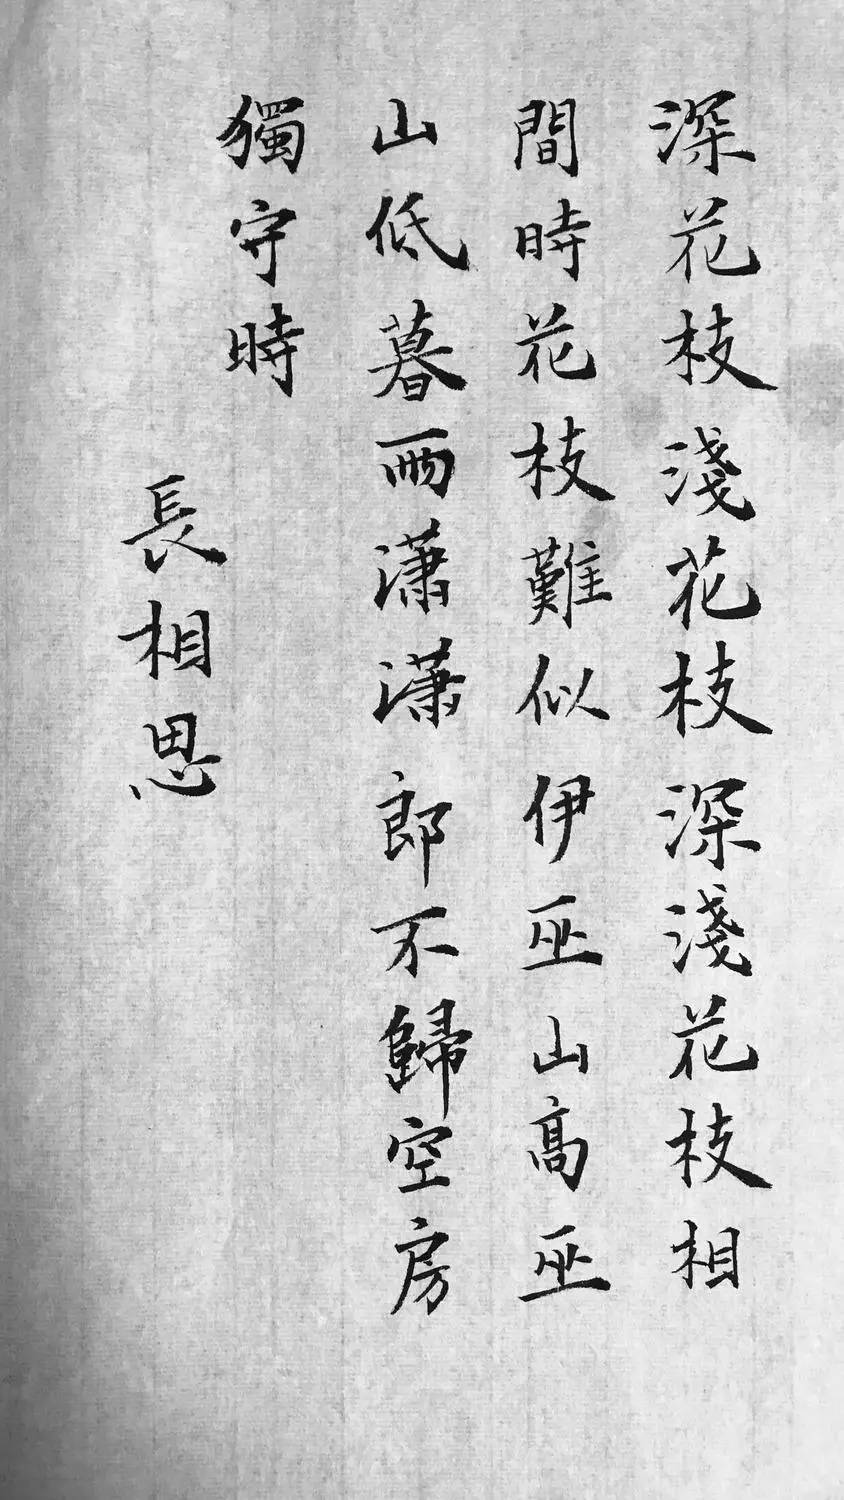 深花枝淺花枝深淺花枝相
間時花枝難似伊巫山高巫
山低暮雨瀟瀟郎不歸空房
獨守時
長相思